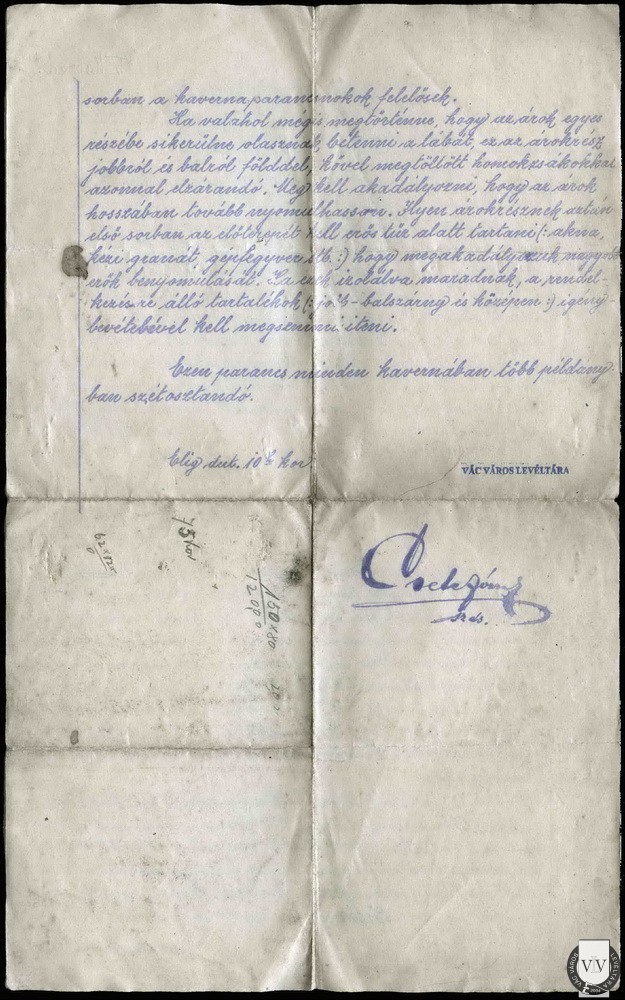 sorban a kavernaparancsnokok felelősek.
Ha valahol mégis megtörténne, hogy az árok egyes
részébe sikerülne olasznak betenni a lábát, ez az árokrész
jobbról és balról földdel, kővel megtöltött homokzsákokkal
azonnal elzárandó. Meg kell akadályozni, hogy az árok
hosszában tovább nyomulhasson. Ilyen árokrésznek aztán
első sorban az előterepét kell erős tűz alatt tartani (: akna,
kézi gránát, gépfegyver stb. :) hogy megakadályozzuk nagyobb
erők benyomulását. Ha ezek izolálva maradnak, a rendel-
kezésre álló tartalékok (: jobb - balszárny és középen :) igény-
bevételével kell megsemmisíteni.
Ezen parancs minden kavernában több példány-
ban szétosztandó.
Elig dut. 10h kor
VÁC VÁROS LEVÉLTÁRA
75 kor
62 x 120
0
150 x 80
1200 0
Cseh
szds.
VÁC VÁROS LEVÉLTÁRA
VVL